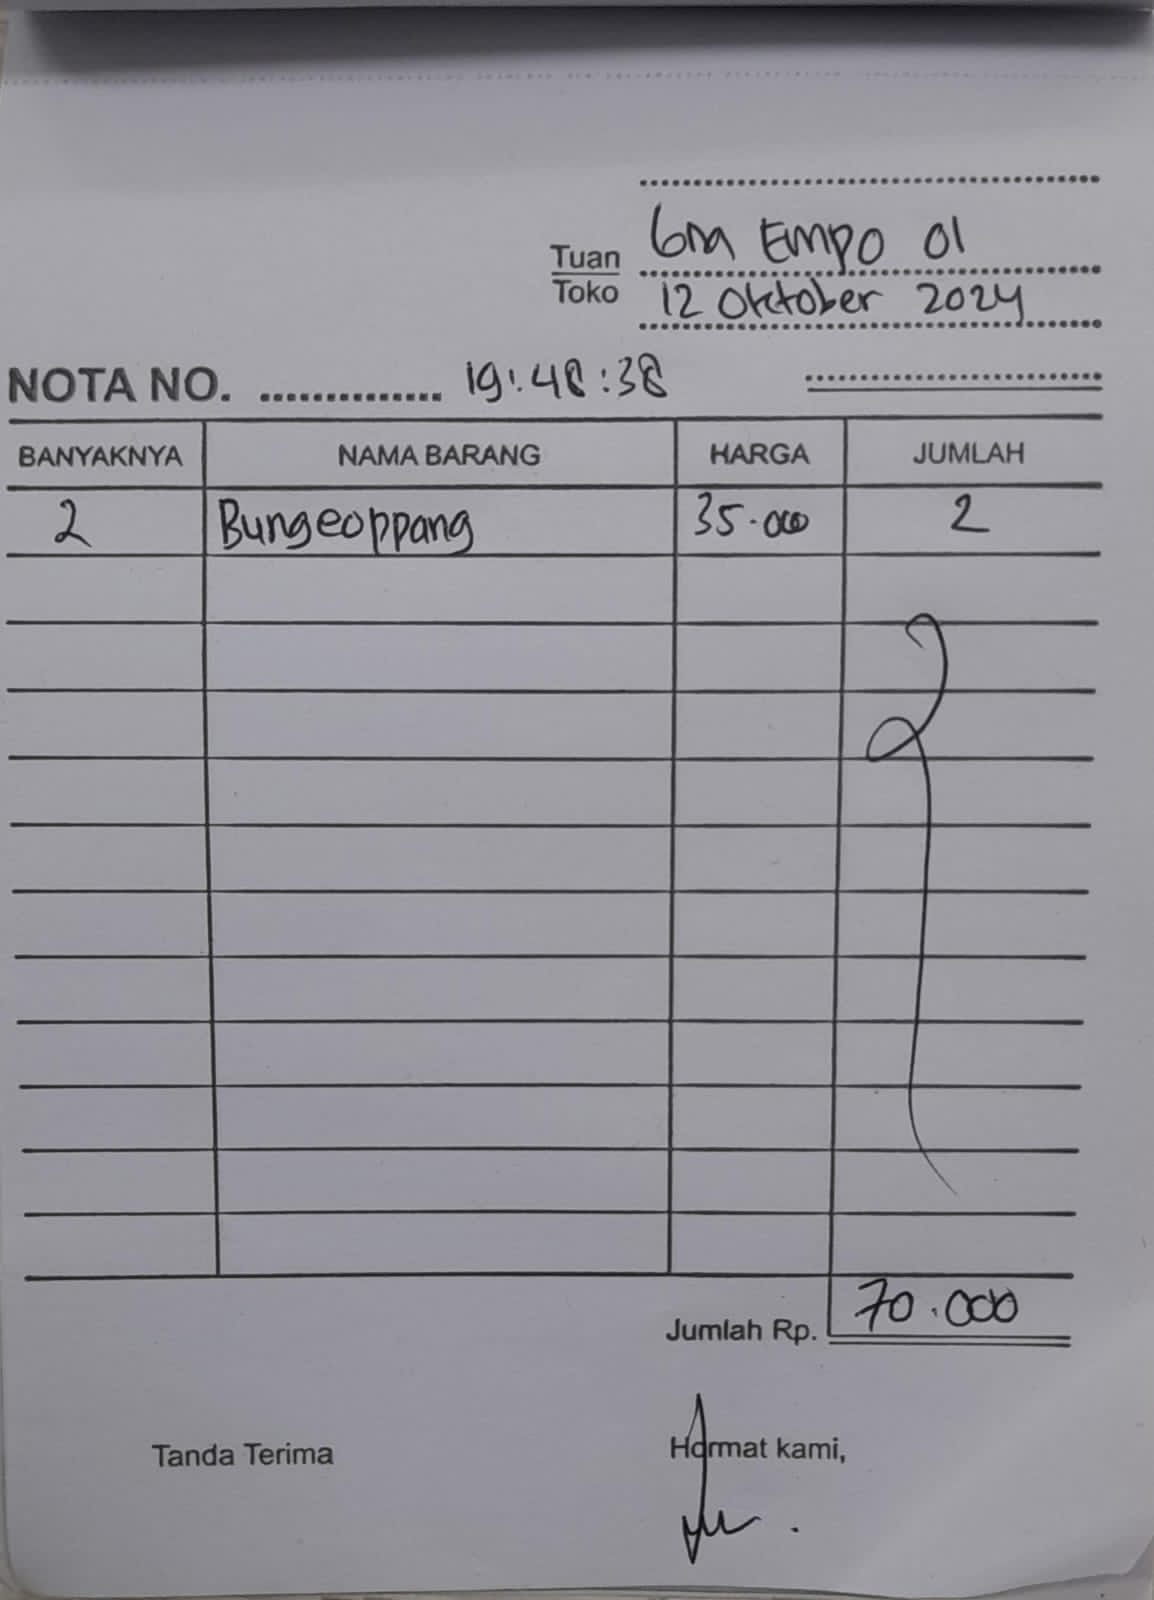 Tuan Gra Empo 01
Toko 12 Oktober 2024
NOTA NO. .............. 19:48:38
BANYAKNYA NAMA BARANG HARGA JUMLAH
2 Bungeoppang 35.000 2
Jumlah Rp. 70.000
Tanda Terima Hormat kami,